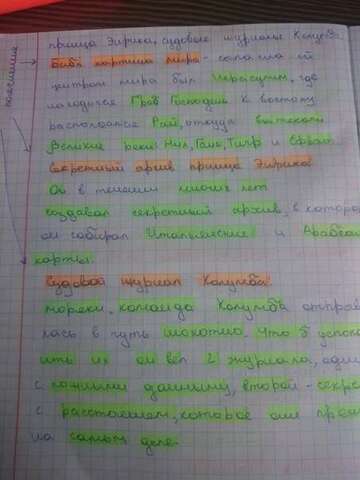 пояснение
принца Энрике, судовые журналы Колумба
Библ картина мира - согласно ей
центром мира был Иерусалим, где
находился Гроб Господень. К востоку
располагался Рай, откуда вытекали
Великие реки: Нил, Ганг, Тигр и Ефрат
Секретный архив принца Энрике
Он в течении многих лет
создавал секретный архив, в которо
он собирал Итальянские и Арабски
карты.
Судовой журнал Колумба
моряки, команда Колумба отправи
лась в путь неохотно. Что б успоко
ить их он вёл 2 журнала, один
с ложными данными, второй - секре
с расстоянием, которое они прош
на самом деле.